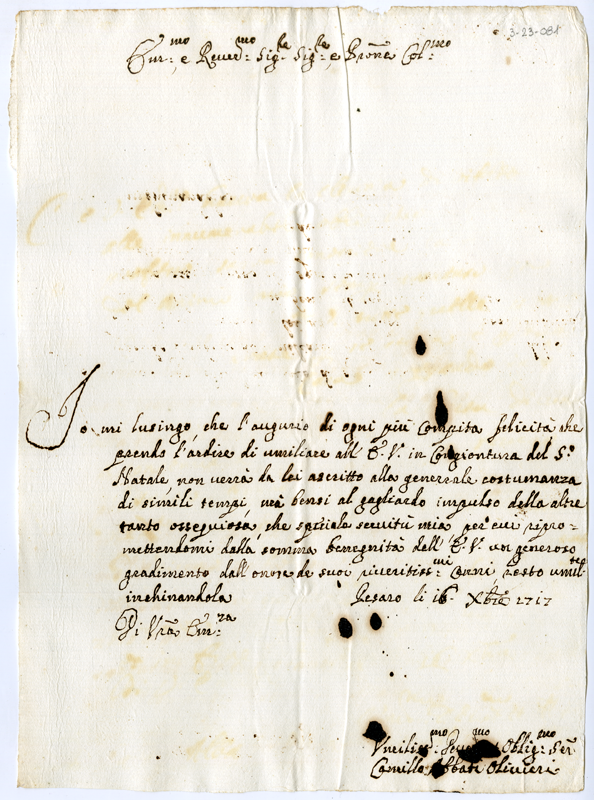 3-23-081
Em:mo e Rever:mo Sig:re Sig:re, e Prōne Col:mo
Io mi lusingo, che l'augurio di ogni più compita felicità che
prendo l'ardire di umiliare all'E.V. in congiontura del S.o
Natale, non verrà da lei ascritto alla generale costumanza
di simili tempi, mà bensi al gagliardo impulso della altre
tanto ossequiosa, che speziale servitù mia, per cui ripro-
mettendomi dalla somma benegnità dell'E.V. un generoso
gradimento dall'onore de suoi riveritiss:mi Cenni, resto umil:te
inchinandola Pesaro li 16 Xbre 1717
Di Vrā Em:za
Umiliss:mo Oblig:mo Ser
Camillo Abbati Olivieri